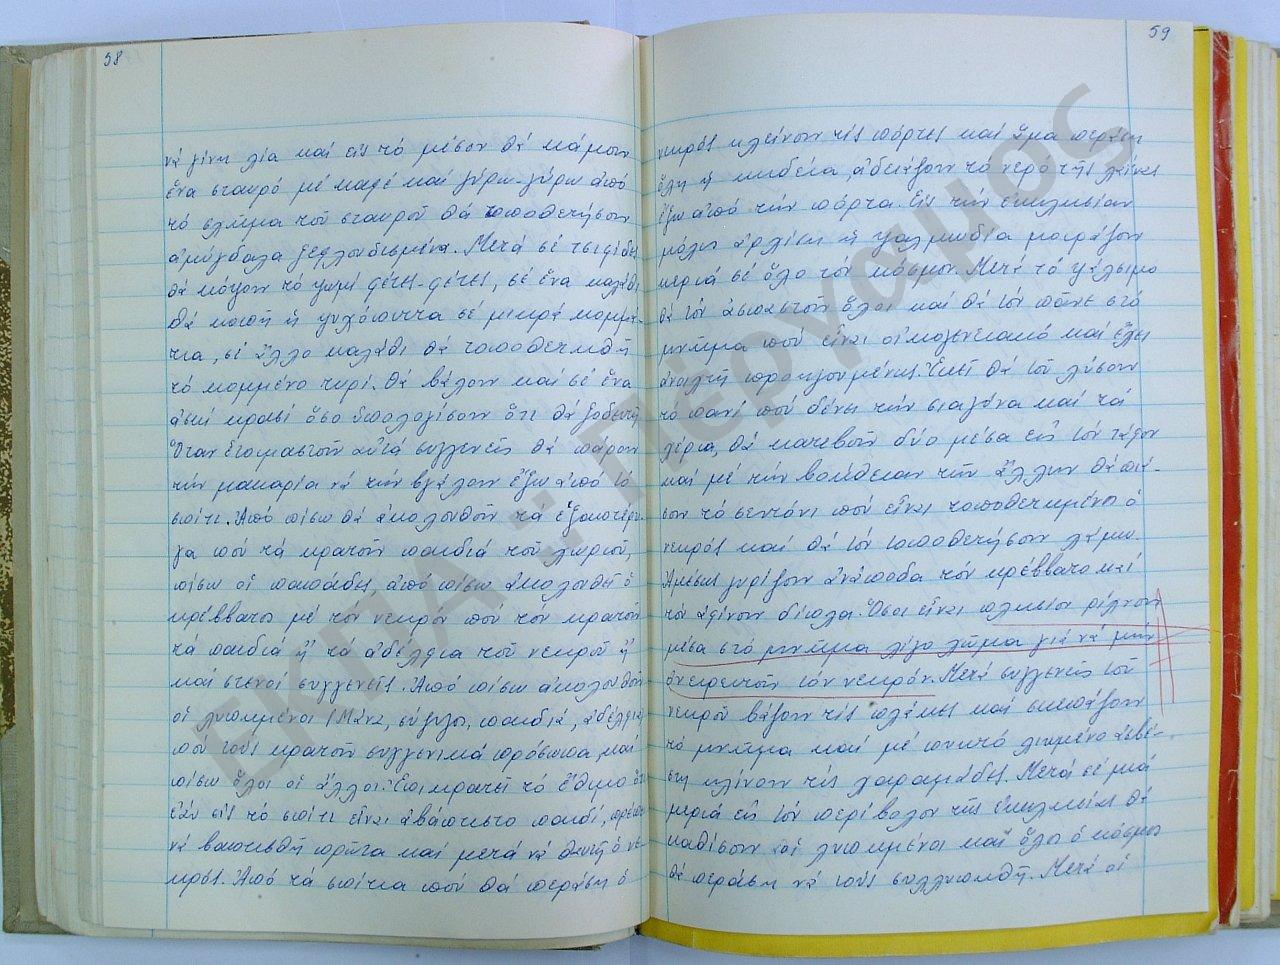 58
νά γίνη λία καί εἰς τό μέσον θά κάμουν
ἕνα σταυρό μέ καφέ καί γύρω-γύρω ἀπό
τό σχῆμα τοῦ σταυροῦ θά τοποθετήσουν
ἀμύγδαλα ξεφλουδισμένα. Μετά σέ
θά κόψουν τό ψωμί φέτες-φέτες, σέ ἕνα καλάθι
θά κοπῆ ἡ ψυχόπιττα σέ μικρά κομμά-
τια, σέ ἄλλο καλάθι θά τοποθετηθῆ
τό κομμένο τυρί. Θά βάλουν καί σέ ἕνα
ἀσκί κρασί ὅσο ὑπολογίσουν ὅτι θά ξοδευτῆ
Ὅταν ἑτοιμαστοῦν αὐτά συγγενεῖς θά πάρουν
τήν μακαρία νά τήν βγάλουν ἔξω ἀπό τό
σπίτι. Ἀπό πίσω θά ἀκολουθοῦν τά ἑξαπτέρυ-
γα πού τά κρατοῦν παιδιά τοῦ χωριοῦ,
πίσω οἱ παπάδες, ἀπό πίσω ἀκολουθεῖ ὁ
κρέββατος μέ τόν νεκρόν πού τόν κρατοῦν
τά παιδιά ἤ τά ἀδέλφια τοῦ νεκροῦ ἤ
καί στενοί συγγενεῖς. Ἀπό πίσω ἀκολουθοῦν
οἱ λυπημένοι (Μάνα, σύζυγο, παιδιά, ἀδέλφια
πού τούς κρατοῦν συγγενικά πρόσωπα, καί
πίσω ὅλοι οἱ ἄλλοι. Ἐπικρατεῖ τό ἔθιμο ὅτι
Ἐάν εἰς τό σπίτι εἶναι ἀβάπτιστο παιδί, πρέπει
νά βαπτισθῆ πρῶτα καί μετά νά θαυτῆ ὁ νε-
κρός. Ἀπό τά σπίτια πού θά περάση ὁ
59
νεκρός κλείνουν τίς πόρτες καί ἅμα περάση
ὅλη ἡ κηδεία, ἀδειάζουν τό νερό τῆς λαίνας
ἔξω ἀπό τήν πόρτα. Εἰς τήν ἐκκλησίαν
μόλις ἀρχίση ἡ ψαλμωδία μοιράζουν
κεριά σέ ὅλο τόν κόσμον. Μετά τό ψάλσιμο
θά τόν ἀσπαστοῦν ὅλοι καί θά τόν πᾶνε στό
μνῆμα πού εἶναι οἰκογενειακό καί ἔχει
ἀνοιχτῆ προηγουμένως. Ἐκεῖ θά τοῦ λύσουν
τό πανί πού δένει τήν σιαγόνα καί τά
χέρια, θά κατεβοῦν δύο μέσα εἰς τόν τάφον
καί μέ τήν βοήθειαν τῶν ἄλλων θά πιά-
σουν τό σεντόνι πού εἶναι τοποθετημένος ὁ
νεκρός καί θά τόν τοποθετήσουν χάμω.
Ἀμέσως γυρίζουν ἀνάποδα τόν κρέββατο καί
τόν ἀφίνουν δίπλα. Ὅσοι εἶναι πλησίον ρίχνουν
μέσα στό μνῆμα λίγο χῶμα γιά νά μήν
ὀνειρευτοῦν τόν νεκρόν. Μετά συγγενεῖς τοῦ
νεκροῦ βάζουν τίς πλάκες καί σκεπάζουν
τό μνῆμα καί μέ πηχτό λιωμένο ἀσβέ-
στη κλίνουν τίς χαραμάδες. Μετά σέ μιά
μεριά εἰς τόν περίβολον τῆς ἐκκλησίας θά
καθίσουν οἱ λυπημένοι καί ὅλος ὁ κόσμος
θά περάση νά τούς συλλυπηθῆ. Μετά οἱ
ΕΚΠΑ :: Πέργαμος